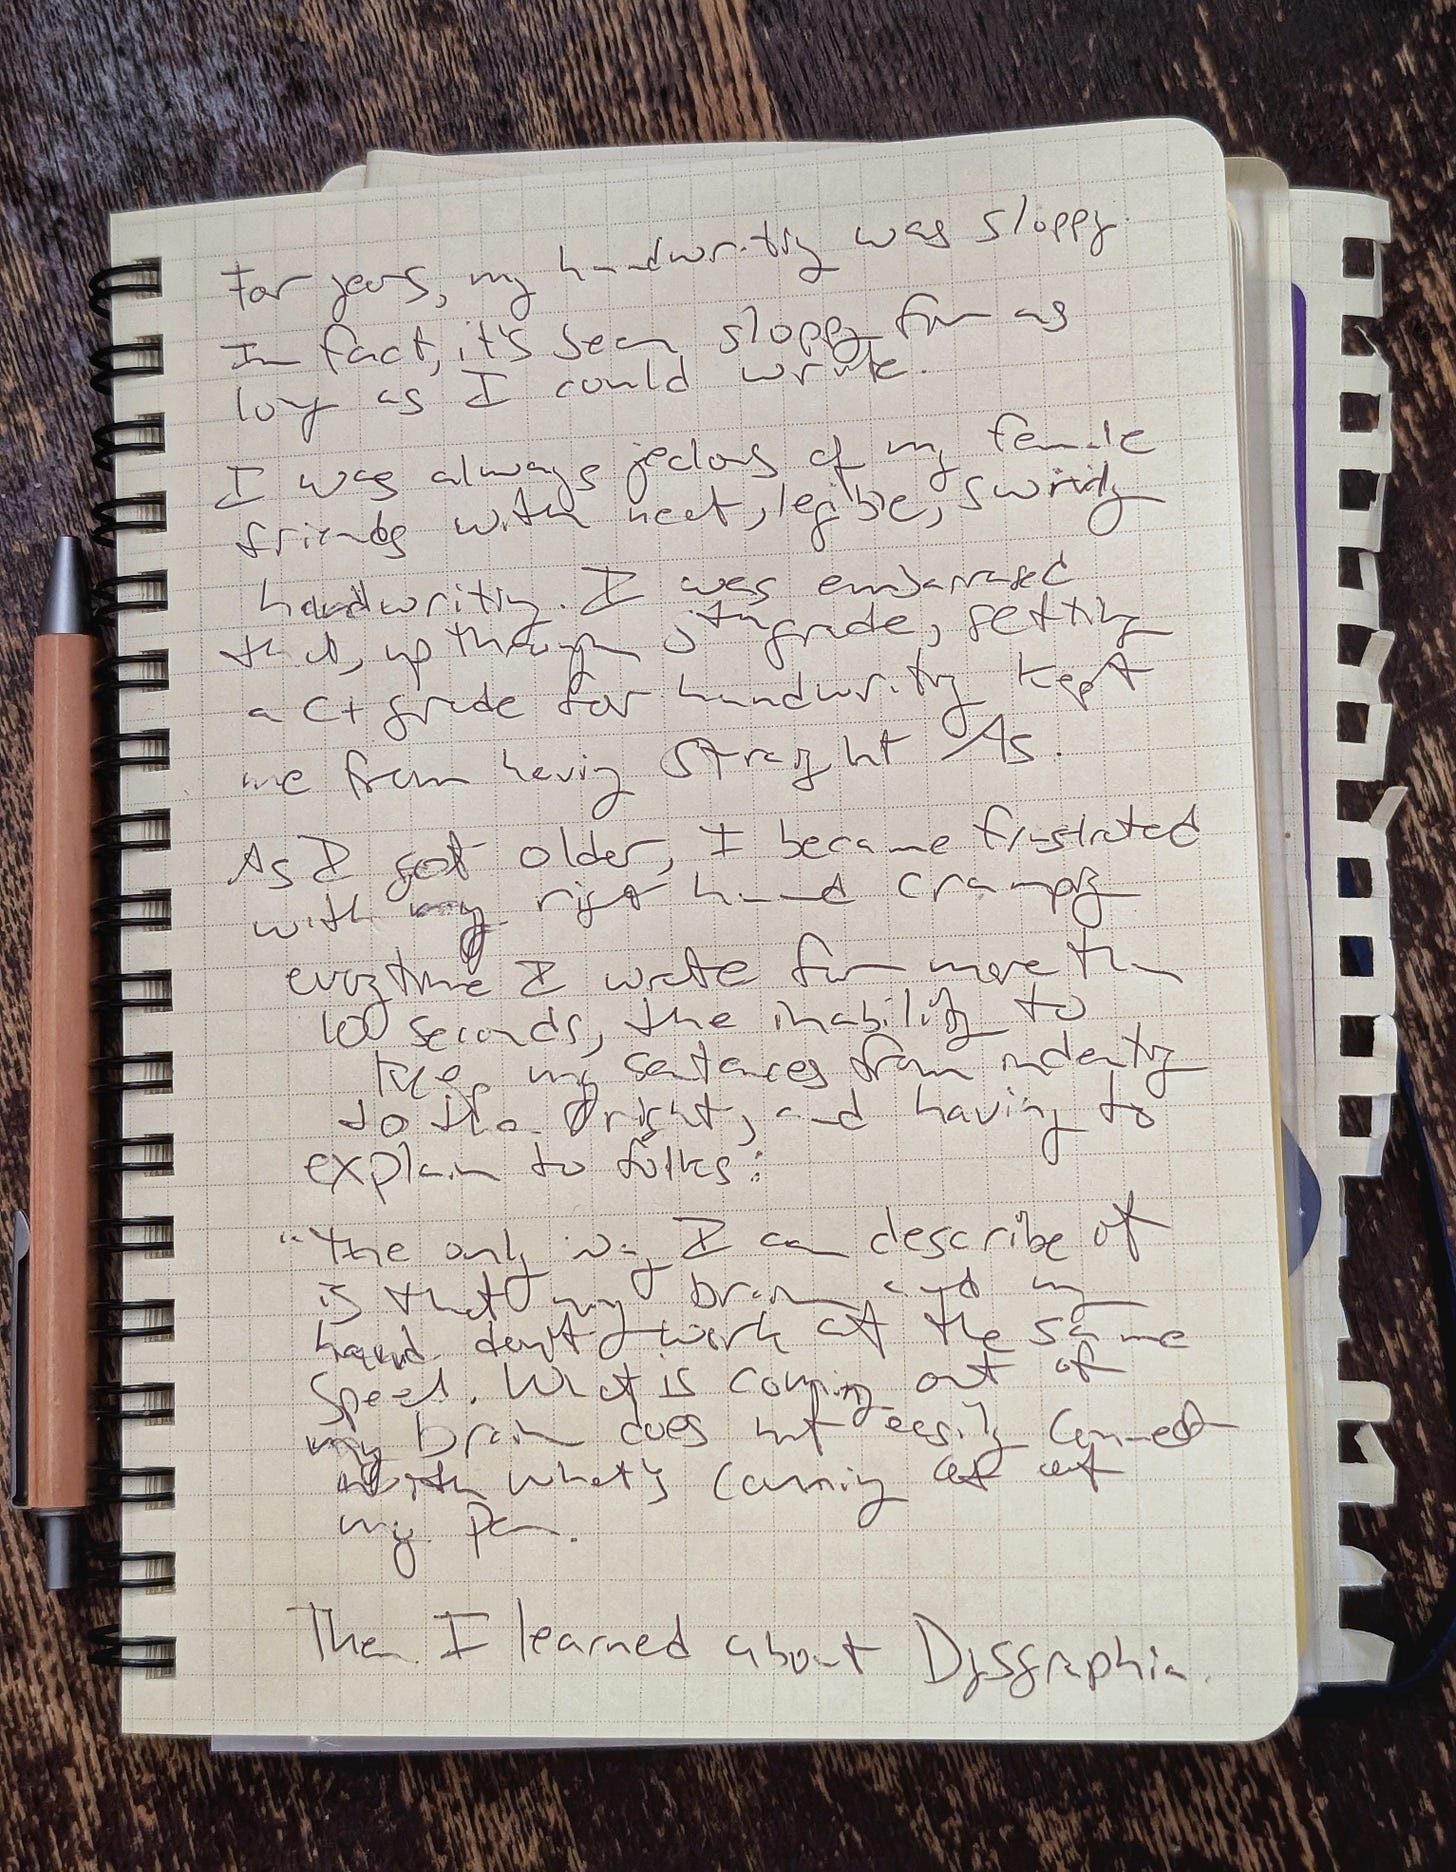 For years, my handwriting was sloppy.
In fact, it's been sloppy for as
long as I could write.
I was always jealous of my female
friends with neat, legible, swirly
handwriting. I was embarrased
that, up through 5th grade, getting
a C+ grade for handwriting kept
me from having straight As.
As I got older, I became frustrated
with my right hand cramping
everytime I wrote for more than
10 seconds, the inability to
keep my sentences from indenting
to the right, and having to
explain to folks:
"The only way I can describe it
is that my brain and my
hand don't work at the same
speed. What is coming out of
my brain does not easily connect
with what's coming out of
my pen.
Then I learned about Dysgraphia.